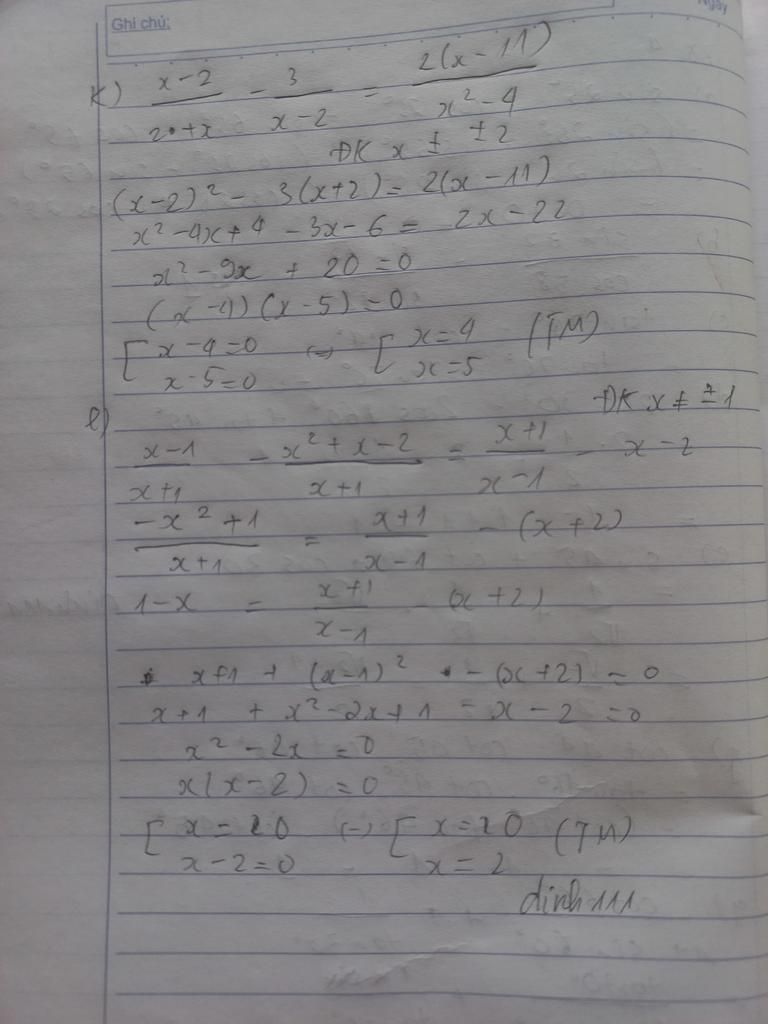 Ghi chú:
Ngày
k) (x-2)/(2+x) - 3/(x-2) = 2(x-11)/(x²-4)
ĐK x ± ±2
(x-2)² - 3(x+2) = 2(x-11)
x² -4x+4 -3x-6 = 2x-22
x² - 9x + 20 =0
(x -4) (x-5) =0
[ x-4=0 (=) [ x=4 (TM)
x-5=0 x=5
ĐK x ≠ ±1
l)
(x-1)/(x+1) - (x²+x-2)/(x+1) = (x+1)/(x-1) - x-2
(-x²+1)/(x+1) = (x+1)/(x-1) - (x+2)
1-x = (x+1)/(x-1) - (x+2)
x+1 + (x-1)² - (x+2) = 0
x+1 + x²-2x+1 - x - 2 =0
x² - 2x =0
x(x-2) =0
[ x = 0 (=) [ x=0 (TM)
x-2=0 x=2
dinh111